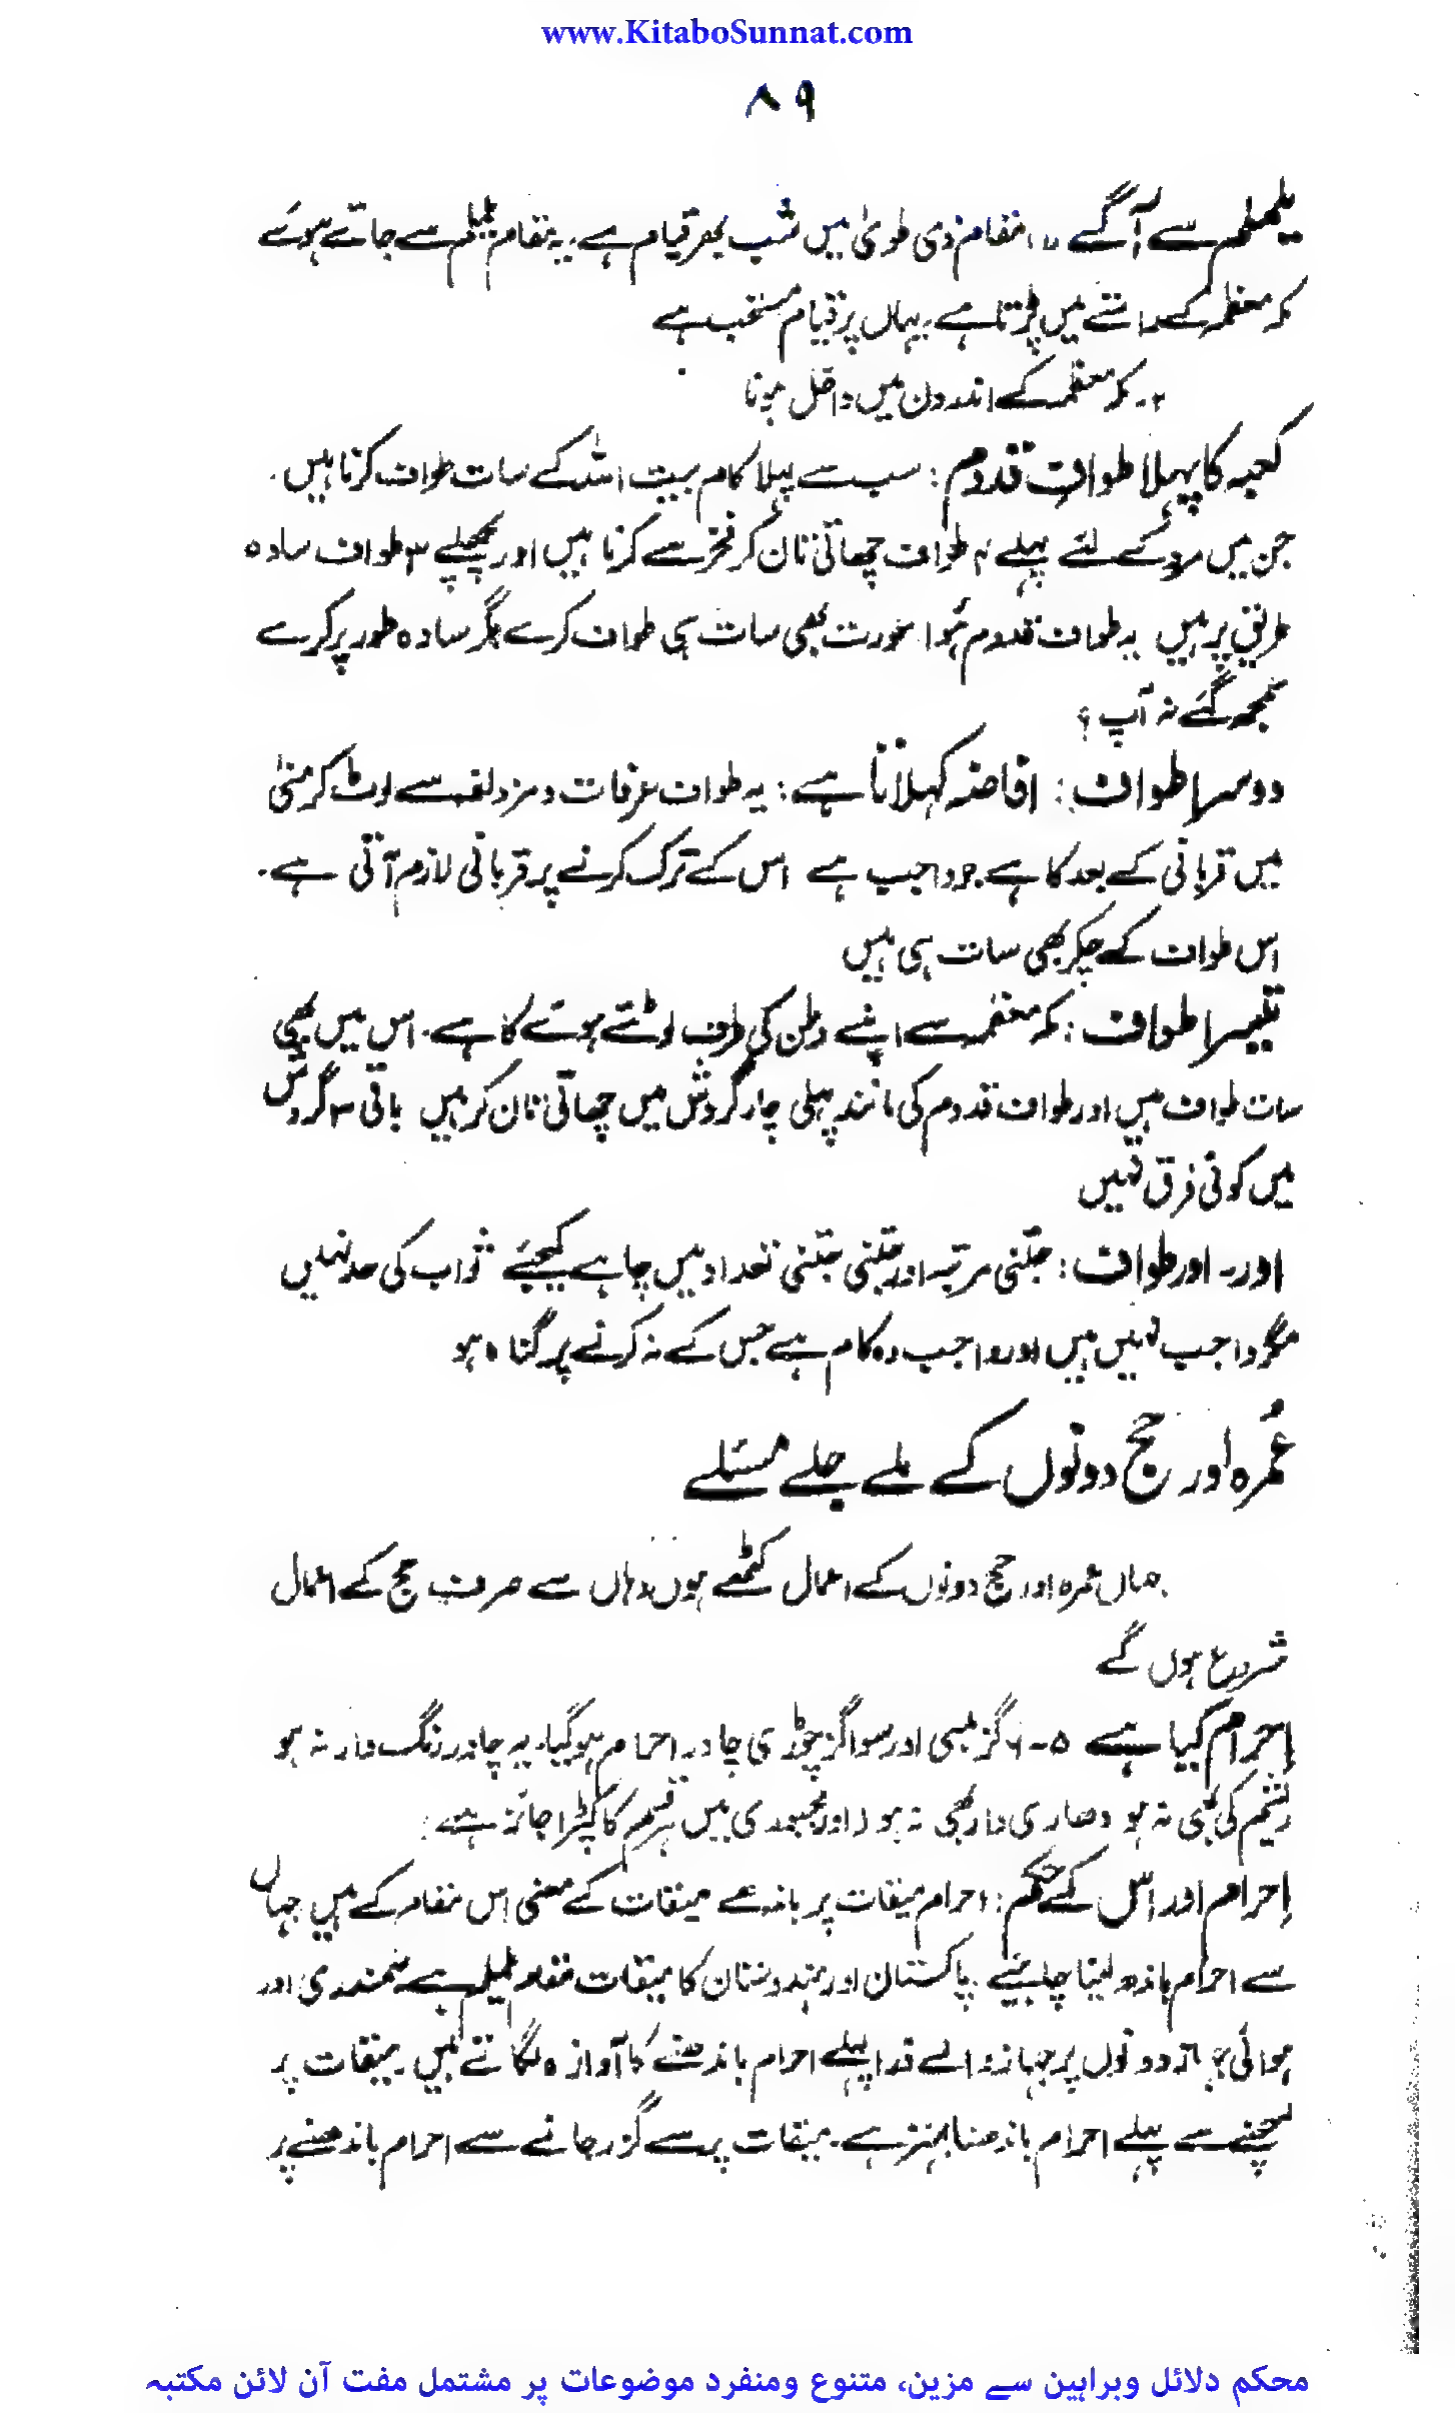 www.KitaboSunnat.com
۸۹
یلملم سے آگے ۱، مقام ذی طویٰ میں شب بھر قیام ہے، یہ مقام یلملم سے جاتے ہوئے
مکہ معظمہ کے راستے میں پڑتا ہے، یہاں پر قیام مستحب ہے
۲۔ مکہ معظمہ کے اندرون میں داخل ہونا
کعبہ کا پہلا طوافِ قدوم : سب سے پہلا کام بیت اللہ کے سات طواف کرنا ہیں۔
جن میں مرد کے لئے پہلے ۴ طواف چھاتی تان کر فخر سے کرنا ہیں اور پچھلے ۳ طواف سادہ
طریق پر ہیں یہ طواف قدوم ہُوا عورت بھی سات ہی طواف کرے مگر سادہ طور پر کرے
سمجھ گئے نہ آپ ؟
دوسرا طواف : افاضہ کہلاتا ہے : یہ طواف عرفات و مزدلفہ سے لوٹ کر منیٰ
میں قربانی کے بعد کا ہے جو واجب ہے اس کے ترک کرنے پر قربانی لازم آتی ہے۔
اس طواف کے چکر بھی سات ہی ہیں
تیسرا طواف : مکہ معظمہ سے اپنے وطن کی طرف لوٹتے ہوئے کا ہے۔ اس میں بھی
سات طواف ہیں اور طواف قدوم کی مانند پہلی چار گردش میں چھاتی تان کر ہیں باقی ۳ گردش
میں کوئی فرق نہیں
اور۔ اور طواف : جتنی مرتبہ اور جتنی جتنی تعداد میں چاہے کیجئے ثواب کی حد نہیں
مگر واجب نہیں ہیں اور واجب وہ کام ہے جس کے نہ کرنے پر گناہ ہو
عُمرہ اور حج دونوں کے ملے جلے مسئلے
جہاں عمرہ اور حج دونوں کے اعمال کٹھے ہوں وہاں سے صرف حج کے اعمال
شروع ہوں گے
اِحرام کیا ہے ۵-۶ گز لمبی اور سوا گز چوڑی چادر احرام ہو گیا۔ یہ چادر رنگ دار نہ ہو
ریشم کی بھی نہ ہو دھاری دار بھی نہ ہو اور مجبوری میں ہر قسم کا کپڑا جائز ہے :
اِحرام اور اس کے حکم : احرام میقات پر باندھے میقات کے معنی اس مقام کے ہیں جہاں
سے احرام باندھ لینا چاہیئے۔ پاکستان اور ہندوستان کا میقات مقام یلملم ہے سمندری اور
ہوائی جہاز دونوں پر جہاز والے ذرا پہلے احرام باندھنے کا آوازہ لگاتے ہیں۔ میقات پر
پہنچنے سے پہلے احرام باندھنا بہتر ہے۔ میقات پر سے گزر جانے سے احرام باندھنے پر
محکم دلائل وبراہین سے مزین، متنوع ومنفرد موضوعات پر مشتمل مفت آن لائن مکتبہ